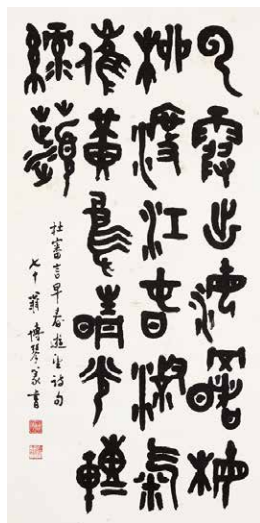 云霞出海曙梅
柳渡江春淑氣
催黃鳥晴光轉
綠蘋
杜審言早春遊望詩句
七十叟博琴篆書